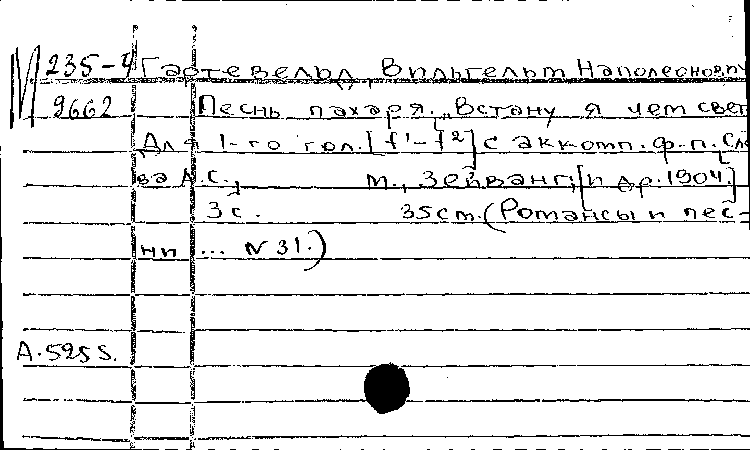 М 235-4 Гартевельд, Вильгельм Наполеонович
9662 Песнь пахаря. „Встану я чем свет
Для 1-го гол. [f¹-f²] с аккомп. ф.п. Сло
ва А.С., М., Зейванг, [п др. 1904.]
3с. 35см. (Романсы и пес=
ни ... N 31.)
А.525s.